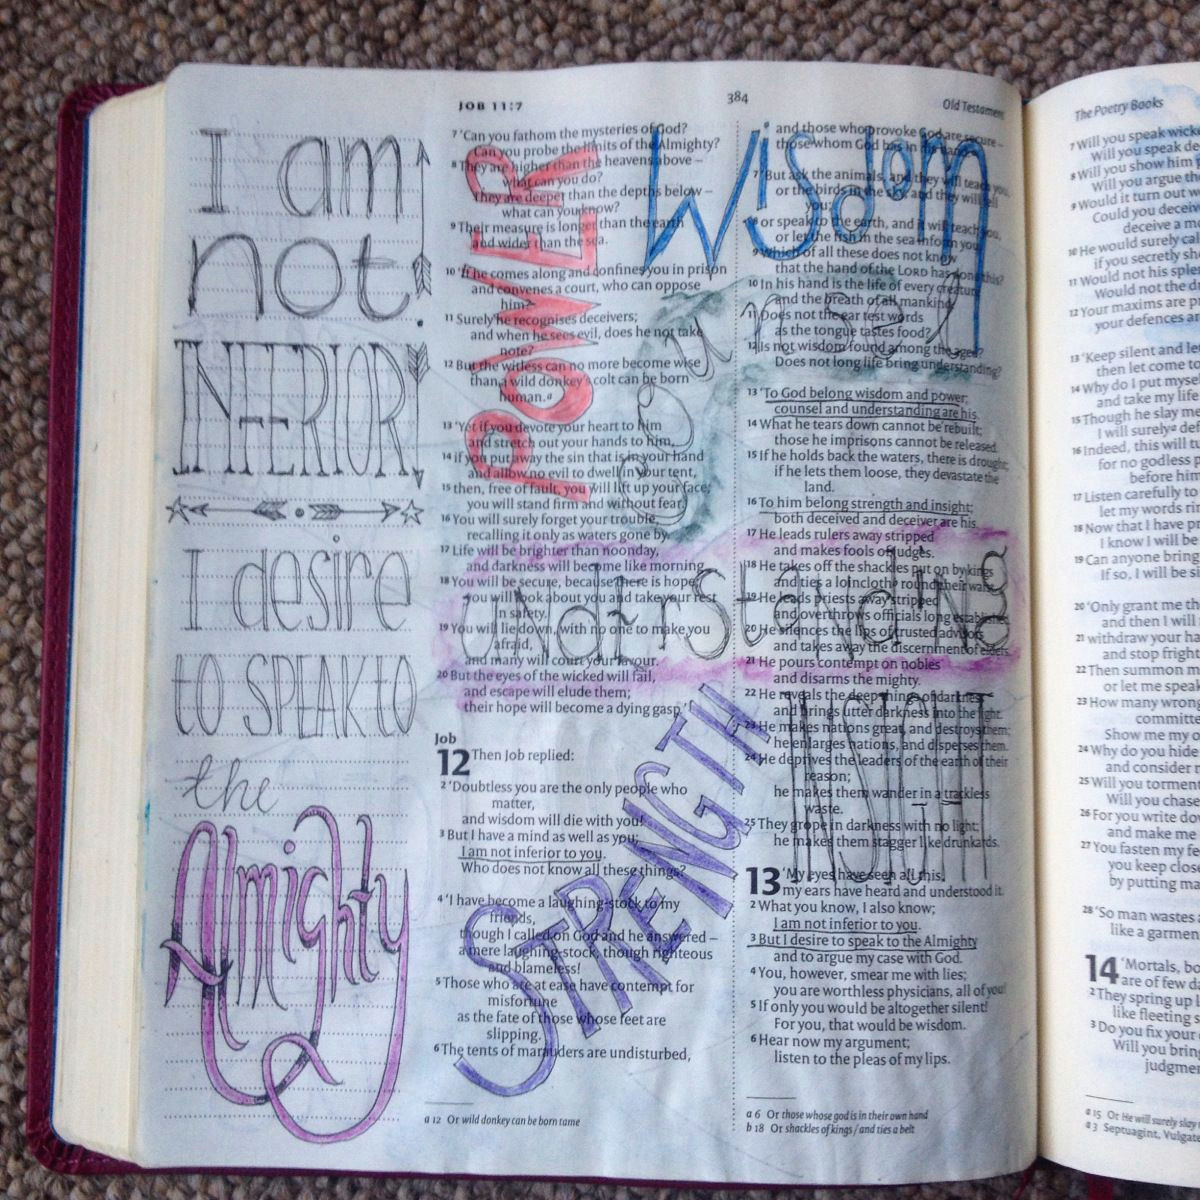 JOB 11:7
384
Old Testament
I am
not
INFERIOR
I desire
to SPEAK to
the
Almighty
POWER
Wisdom
Counsel
understanding
STRENGTH
INSIGHT
7 'Can you fathom the mysteries of God?
Can you probe the limits of the Almighty?
8 They are higher than the heavens above –
what can you do?
They are deeper than the depths below –
what can you know?
9 Their measure is longer than the earth
and wider than the sea.
10 'If he comes along and confines you in prison
and convenes a court, who can oppose
him?
11 Surely he recognises deceivers;
and when he sees evil, does he not take
note?
12 But the witless can no more become wise
than a wild donkey's colt can be born
human.a
13 'Yet if you devote your heart to him
and stretch out your hands to him,
14 if you put away the sin that is in your hand
and allow no evil to dwell in your tent,
15 then, free of fault, you will lift up your face;
you will stand firm and without fear.
16 You will surely forget your trouble,
recalling it only as waters gone by.
17 Life will be brighter than noonday,
and darkness will become like morning.
18 You will be secure, because there is hope;
you will look about you and take your rest
in safety.
19 You will lie down, with no one to make you
afraid,
and many will court your favour.
20 But the eyes of the wicked will fail,
and escape will elude them;
their hope will become a dying gasp.'
Job
12 Then Job replied:
2 'Doubtless you are the only people who
matter,
and wisdom will die with you!
3 But I have a mind as well as you;
I am not inferior to you.
Who does not know all these things?
4 'I have become a laughing-stock to my
friends,
though I called on God and he answered –
a mere laughing-stock, though righteous
and blameless!
5 Those who are at ease have contempt for
misfortune
as the fate of those whose feet are
slipping.
6 The tents of marauders are undisturbed,
a 12 Or wild donkey can be born tame
and those who provoke God are secure –
those whom God has in his hand.
7 'But ask the animals, and they will teach you,
or the birds in the sky and they will tell
you;
8 or speak to the earth, and it will teach you,
or let the fish in the sea inform you.
9 Which of all these does not know
that the hand of the LORD has done this?
10 In his hand is the life of every creature
and the breath of all mankind.
11 Does not the ear test words
as the tongue tastes food?
12 Is not wisdom found among the aged?
Does not long life bring understanding?
13 'To God belong wisdom and power;
counsel and understanding are his.
14 What he tears down cannot be rebuilt;
those he imprisons cannot be released.
15 If he holds back the waters, there is drought;
if he lets them loose, they devastate the
land.
16 To him belong strength and insight;
both deceived and deceiver are his.
17 He leads rulers away stripped
and makes fools of judges.
18 He takes off the shackles put on by kings
and ties a loincloth round their waist.
19 He leads priests away stripped
and overthrows officials long established.
20 He silences the lips of trusted advisors
and takes away the discernment of elders.
21 He pours contempt on nobles
and disarms the mighty.
22 He reveals the deep things of darkness
and brings utter darkness into the light.
23 He makes nations great, and destroys them;
he enlarges nations, and disperses them.
24 He deprives the leaders of the earth of their
reason;
he makes them wander in a trackless
waste.
25 They grope in darkness with no light;
he makes them stagger like drunkards.
13 'My eyes have seen all this,
my ears have heard and understood it.
2 What you know, I also know;
I am not inferior to you.
3 But I desire to speak to the Almighty
and to argue my case with God.
4 You, however, smear me with lies;
you are worthless physicians, all of you!
5 If only you would be altogether silent!
For you, that would be wisdom.
6 Hear now my argument;
listen to the pleas of my lips.
a 6 Or those whose god is in their own hand
b 18 Or shackles of kings / and ties a belt
The Poetry Books
7 Will you speak
Will you speak
8 Will you show him
Will you argue the
9 Would it turn out
Could you
deceive a
10 He would surely
if you secretly
11 Would not his
Would not the
12 Your maxims are
your defences
13 'Keep silent and
then let come to
14 Why do I put
and take my life
15 Though he slay
I will surely
16 Indeed, this will
for no godless
before him
17 Listen carefully to
let my words
18 Now that I have
I know I will be
19 Can anyone bring
If so, I will be
20 'Only grant me
and then I will
21 withdraw your
and stop
22 Then summon
or let me speak
23 How many
Show me my
24 Why do you hide
and consider
25 Will you torment
Will you chase
26 For you write
and make me
27 You fasten my
you keep
by putting
28 'So man wastes
like a
14 'Mortals,
are of few
2 They spring up
like fleeting
3 Do you fix your
Will you bring
a 15 Or He will surely slay
a 3 Septuagint,